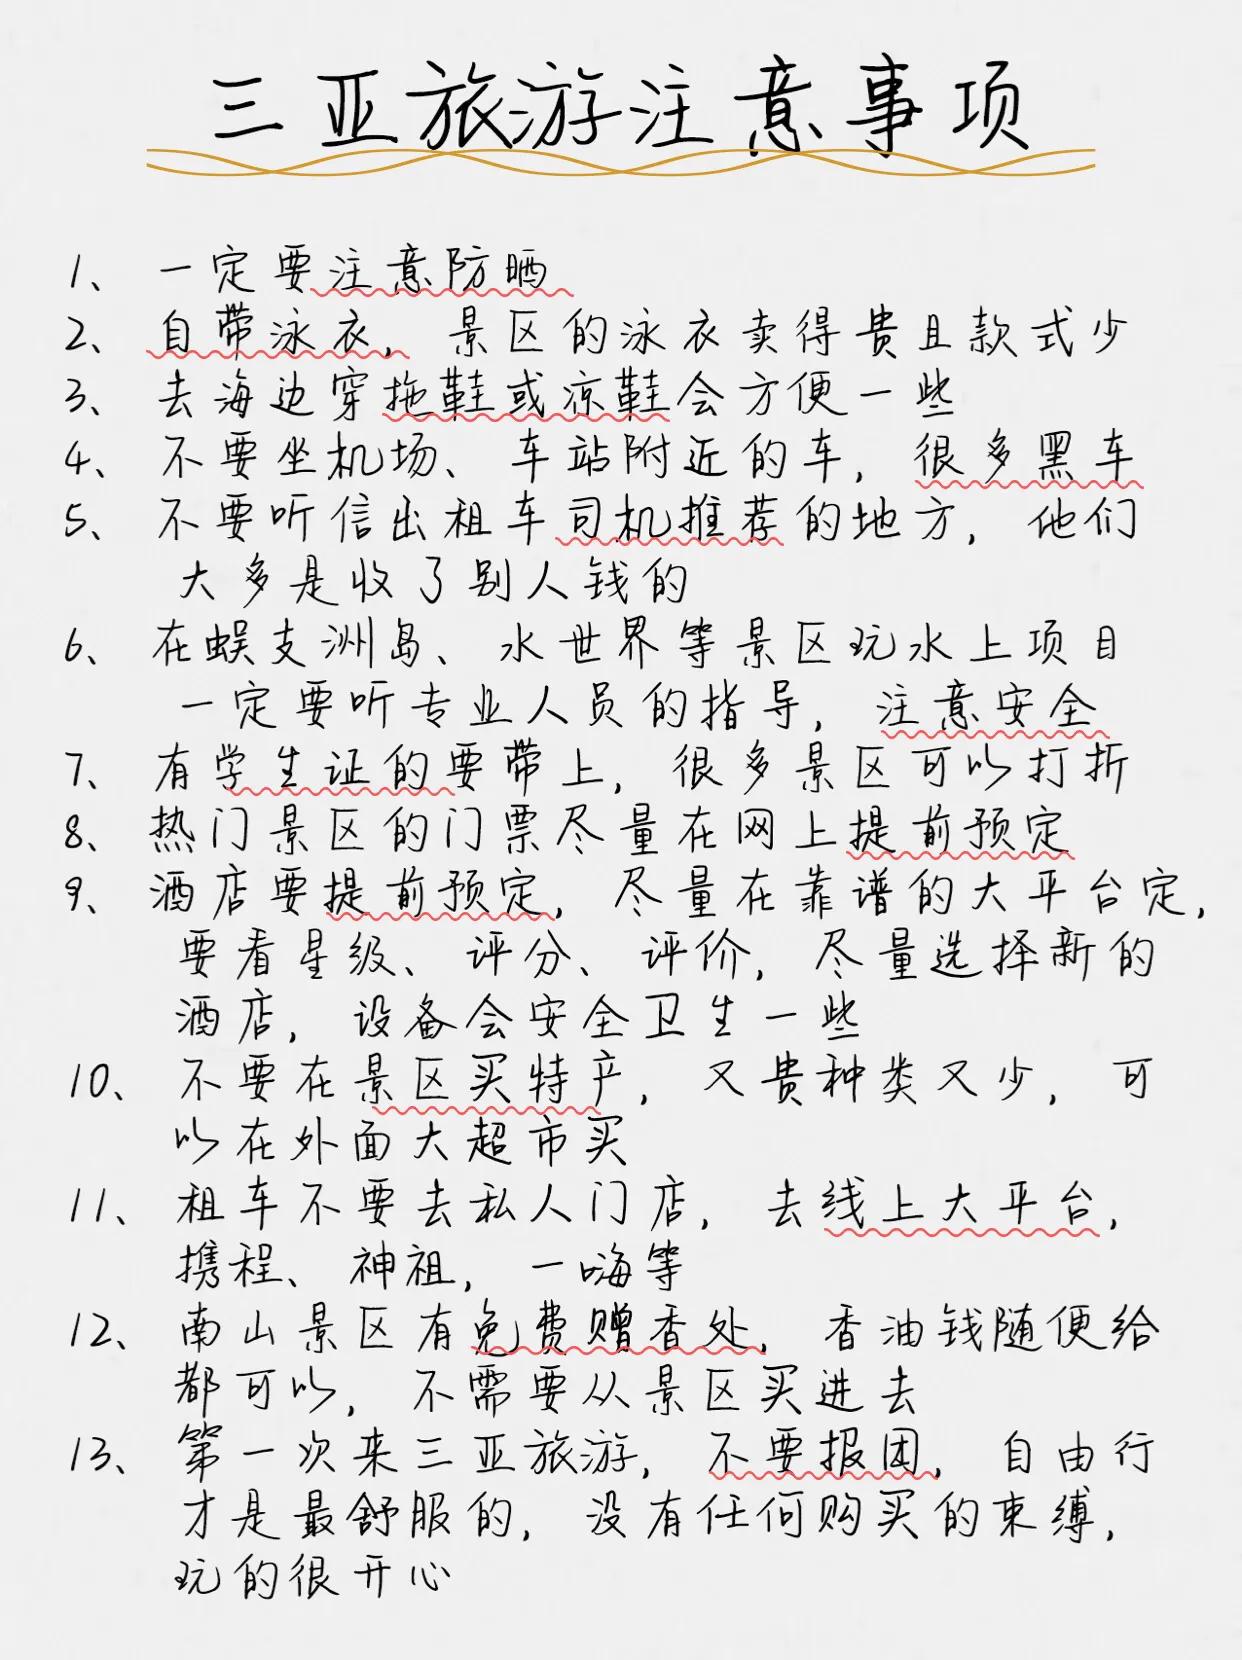 三亚旅游注意事项
1、一定要注意防晒
2、自带泳衣，景区的泳衣卖得贵且款式少
3、去海边穿拖鞋或凉鞋会方便一些
4、不要坐机场、车站附近的车，很多黑车
5、不要听信出租车司机推荐的地方，他们
大多是收了别人钱的
6、在蜈支洲岛、水世界等景区玩水上项目
一定要听专业人员的指导，注意安全
7、有学生证的要带上，很多景区可以打折
8、热门景区的门票尽量在网上提前预定
9、酒店要提前预定，尽量在靠谱的大平台定，
要看星级、评分、评价，尽量选择新的
酒店，设备会安全卫生一些
10、不要在景区买特产，又贵种类又少，可
以在外面大超市买
11、租车不要去私人门店，去线上大平台，
携程、神祖，一嗨等
12、南山景区有免费赠香处，香油钱随便给
都可以，不需要从景区买进去
13、第一次来三亚旅游，不要报团，自由行
才是最舒服的，没有任何购买的束缚，
玩的很开心